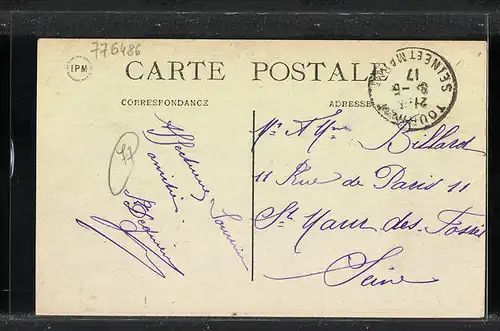 776486
IPM
CARTE POSTALE
CORRESPONDANCE
ADRESSE
SEINE-ET-MARNE
21
8 - 5
17
77
Affectueux Souvenir
amitiés
Mr & Mme Billard
11 Rue de Paris 11
St Maur des Fossés
Seine